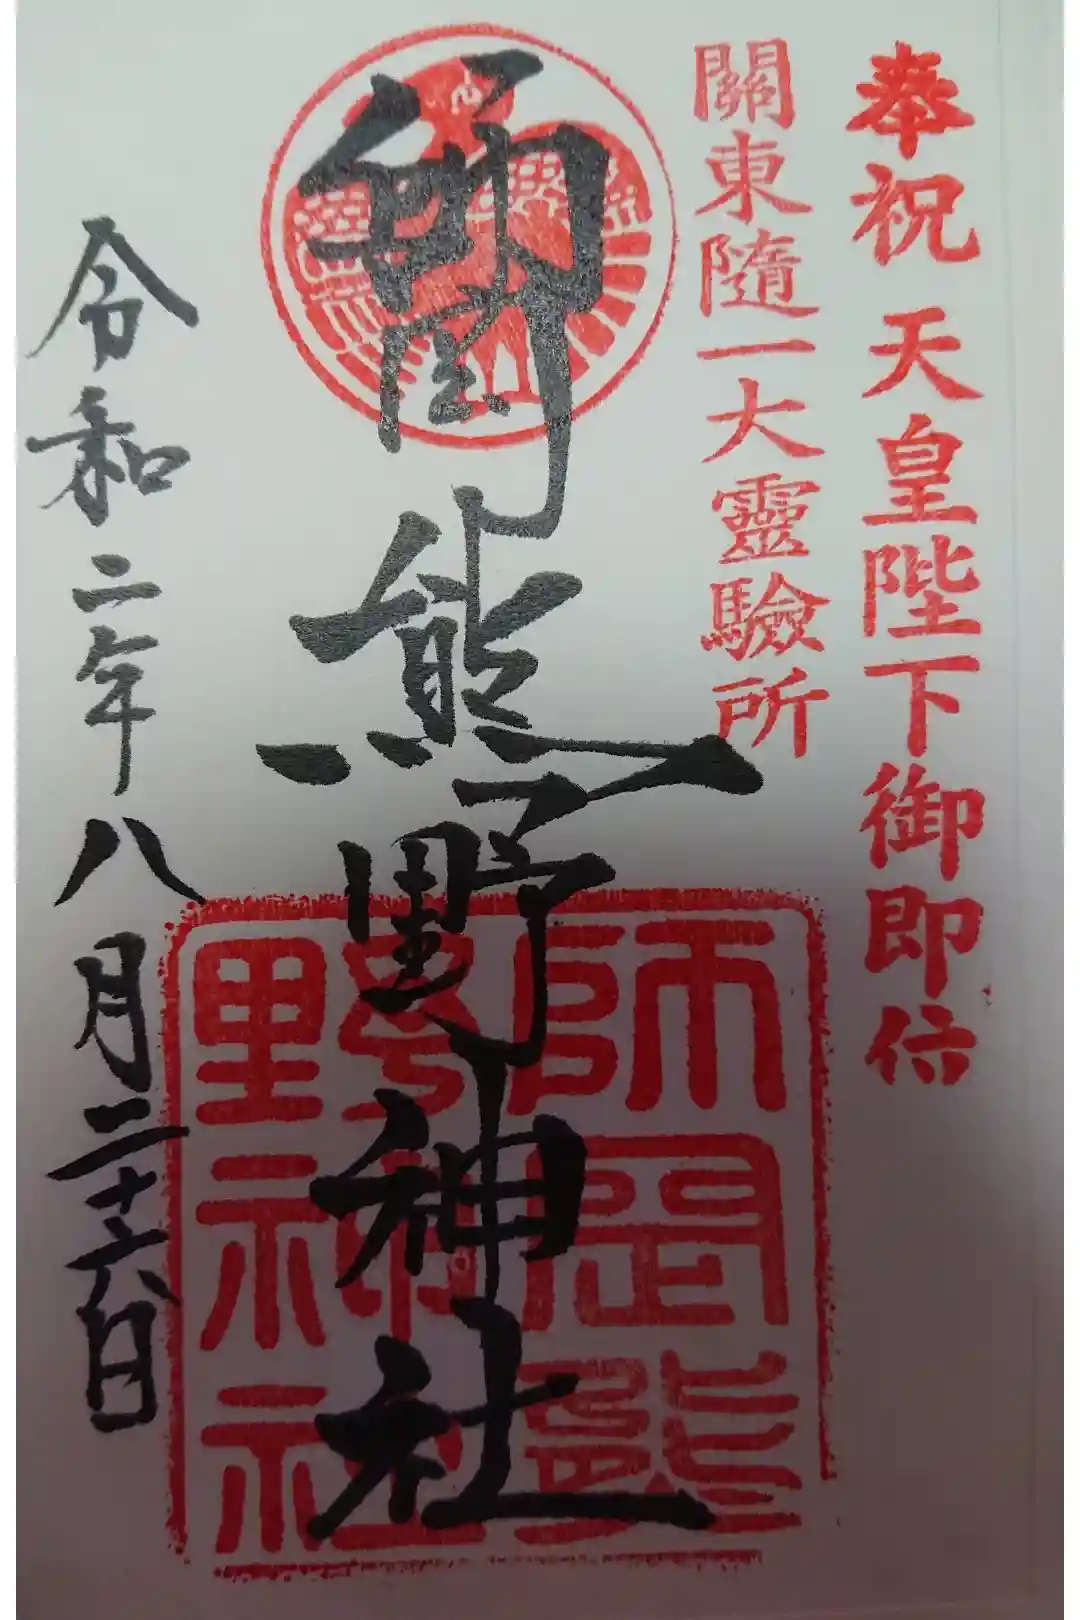 奉祝 天皇陛下御即位
關東隨一大靈驗所
師岡熊野神社
師岡熊
野神社
令和二年八月二十六日